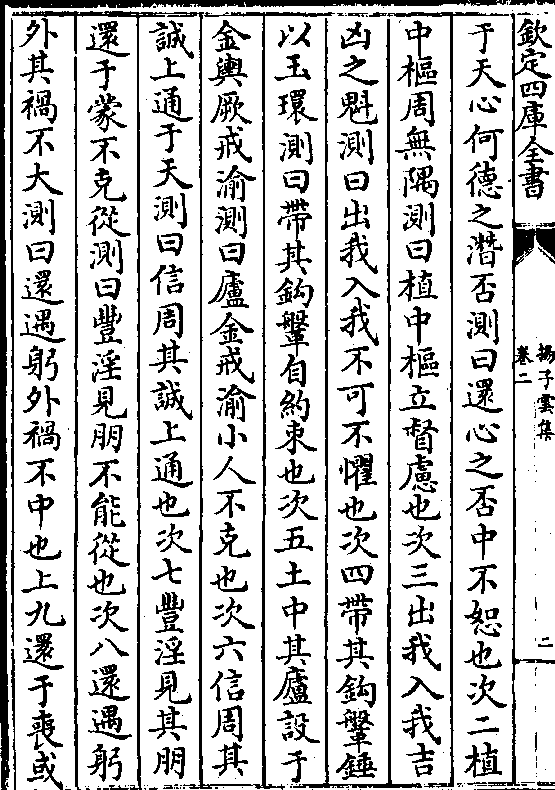 欽定四庫全書
揚子雲集
卷二
二
于天心何德之潛否測曰還心之否中不恕也次二植
中樞周無隅測曰植中樞立督慮也次三出我入我吉
凶之魁測曰出我入我不可不懼也次四帶其鈎鞶錘
以玉環測曰帶其鈎鞶自約束也次五土中其廬設于
金輿厥戒渝測曰廬金戒渝小人不克也次六信周其
誠上通于天測曰信周其誠上通也次七豐淫見其朋
還于蒙不克從測曰豐淫見朋不能從也次八還遇躬
外其禍不大測曰還遇躬外禍不中也上九還于喪或